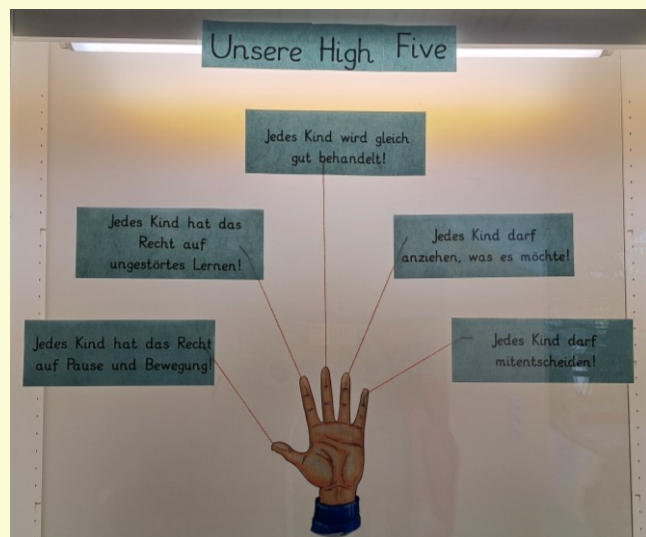 Unsere High Five
Jedes Kind wird gleich
gut behandelt!
Jedes Kind hat das
Recht auf
ungestörtes Lernen!
Jedes Kind darf
anziehen, was es möchte!
Jedes Kind hat das Recht
auf Pause und Bewegung!
Jedes Kind darf
mitentscheiden!